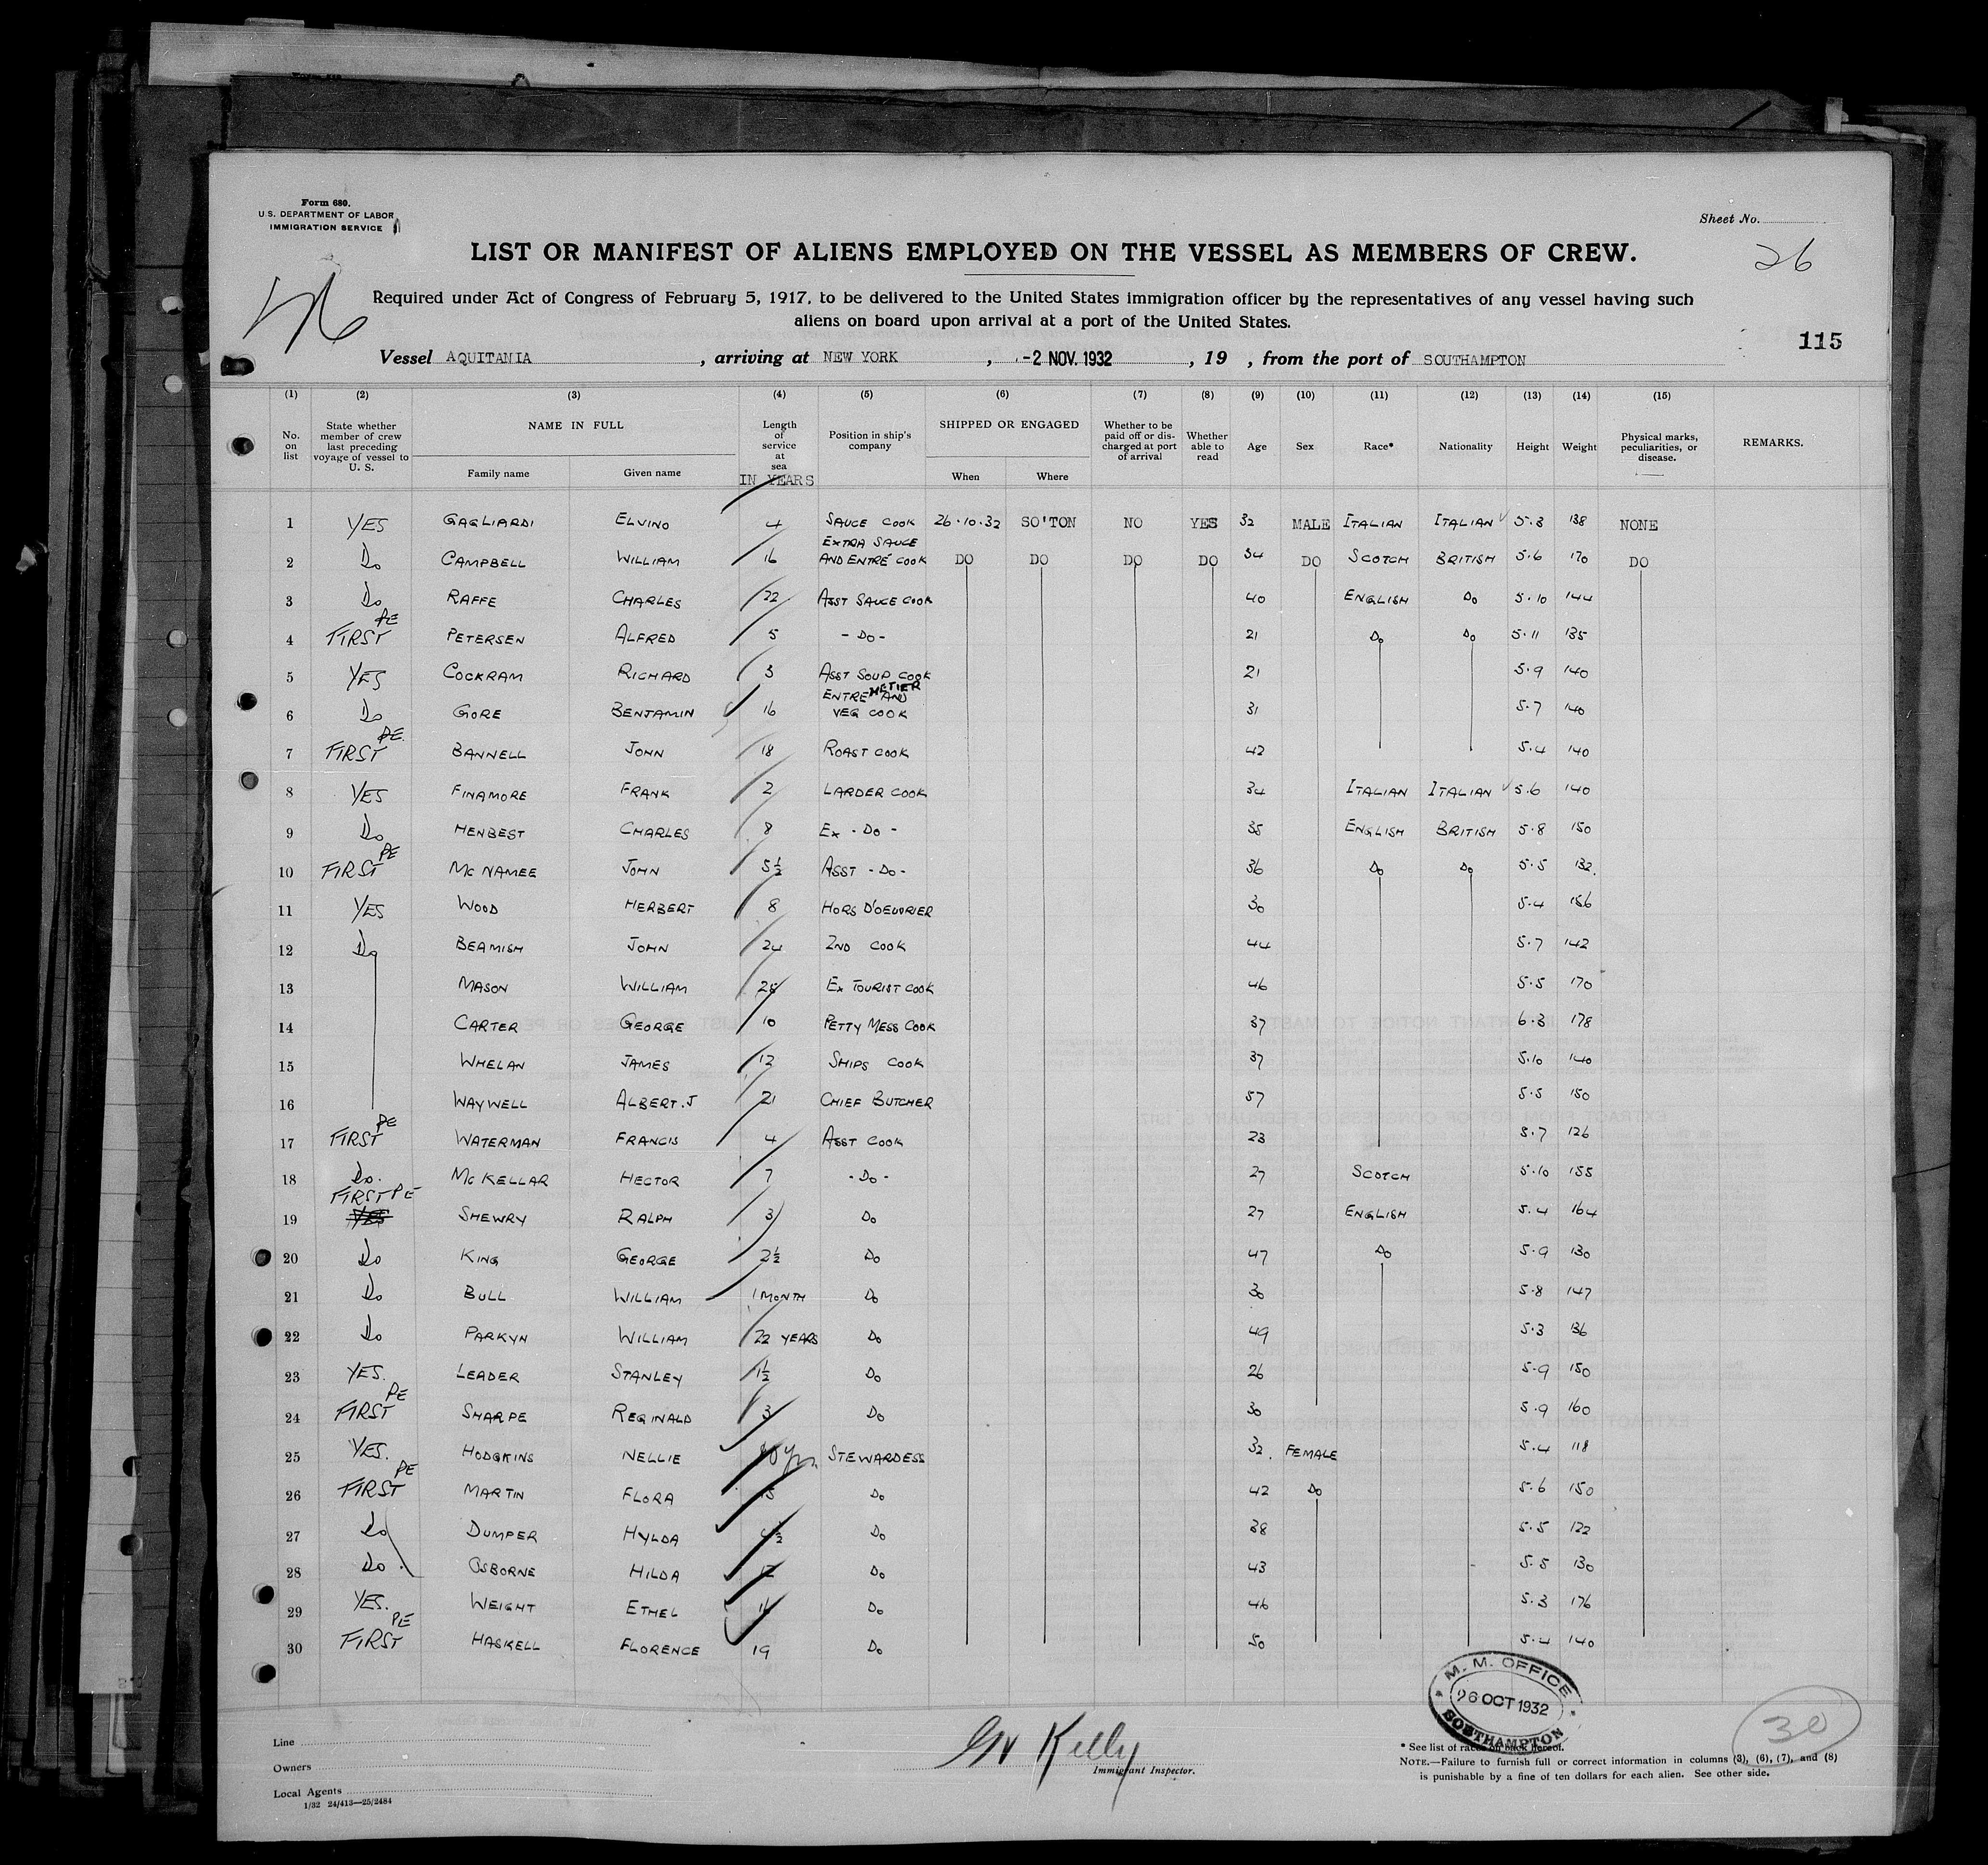 Form 680.
U.S. DEPARTMENT OF LABOR
IMMIGRATION SERVICE
Sheet No.
26
LIST OR MANIFEST OF ALIENS EMPLOYED ON THE VESSEL AS MEMBERS OF CREW.
Required under Act of Congress of February 5, 1917, to be delivered to the United States immigration officer by the representatives of any vessel having such
aliens on board upon arrival at a port of the United States.
115
Vessel AQUITANIA, arriving at NEW YORK, -2 NOV. 1932, 19 , from the port of SOUTHAMPTON
(1) (2) (3) (4) (5) (6) (7) (8) (9) (10) (11) (12) (13) (14) (15)
No. on list
State whether member of crew last preceding voyage of vessel to U. S.
NAME IN FULL
Family name Given name
Length of service at sea
IN YEARS
Position in ship's company
SHIPPED OR ENGAGED
When Where
Whether to be paid off or discharged at port of arrival
Whether able to read
Age Sex Race* Nationality Height Weight
Physical marks, peculiarities, or disease.
REMARKS.
1 YES GAGLIARDI ELVINO 4 SAUCE COOK 26.10.32 SO'TON NO YES 32 MALE ITALIAN ITALIAN 5.3 138 NONE
2 Do CAMPBELL WILLIAM 16 EXTRA SAUCE AND ENTRÉ COOK DO DO DO DO 34 DO SCOTCH BRITISH 5.6 170 DO
3 Do RAFFE CHARLES 22 ASST SAUCE COOK 40 ENGLISH Do 5.10 144
4 FIRST PE PETERSEN ALFRED 5 - Do - 21 Do Do 5.11 135
5 YES COCKRAM RICHARD 3 ASST SOUP COOK 21 5.9 140
6 Do GORE BENJAMIN 16 ENTREMETIER AND VEG COOK 31 5.7 140
7 FIRST PE. BANNELL JOHN 18 ROAST COOK 42 5.4 140
8 YES FINAMORE FRANK 2 LARDER COOK 34 ITALIAN ITALIAN 5.6 140
9 Do HENBEST CHARLES 8 Ex - Do - 35 ENGLISH BRITISH 5.8 150
10 FIRST PE MC NAMEE JOHN 5½ ASST - Do - 36 Do Do 5.5 132.
11 YES WOOD HERBERT 8 HORS D'OEUVRIER 30 5.4 156
12 Do BEAMISH JOHN 24 2ND COOK 44 5.7 142
13 MASON WILLIAM 25 EX TOURIST COOK 46 5.5 170
14 CARTER GEORGE 10 PETTY MESS COOK 37 6.3 178
15 WHELAN JAMES 12 SHIPS COOK 37 5.10 140
16 WAYWELL ALBERT.J 21 CHIEF BUTCHER 57 5.5 150
17 FIRST PE WATERMAN FRANCIS 4 ASST COOK 23 5.7 126
18 Do. MC KELLAR HECTOR 7 - Do - 27 SCOTCH 5.10 155
19 FIRST PE YES SHEWRY RALPH 3 Do 27 ENGLISH 5.4 164
20 Do KING GEORGE 2½ Do 47 Do 5.9 130
21 Do BULL WILLIAM 1 MONTH Do 30 5.8 147
22 Do PARKYN WILLIAM 22 YEARS Do 49 5.3 136
23 YES. LEADER STANLEY 1½ Do 26 5.9 150
24 FIRST PE SHARPE REGINALD 3 Do 30 5.9 160
25 YES. HODGKINS NELLIE STEWARDESS 32. FEMALE 5.4 118
26 FIRST PE MARTIN FLORA Do 42 Do 5.6 150
27 Do DUMPER HYLDA 4½ Do 38 5.5 122
28 Do OSBORNE HILDA 12 Do 43 5.5 130
29 YES. WEIGHT ETHEL Do 46 5.3 176
30 FIRST PE HASKELL FLORENCE 19 Do 50 5.4 140
M. M. OFFICE
26 OCT 1932
SOUTHAMPTON
30
Line
Owners
Local Agents
1/32 24/413—25/2484
Kelly
Immigrant Inspector.
* See list of races on back hereof.
NOTE.—Failure to furnish full or correct information in columns (3), (6), (7), and (8)
is punishable by a fine of ten dollars for each alien. See other side.